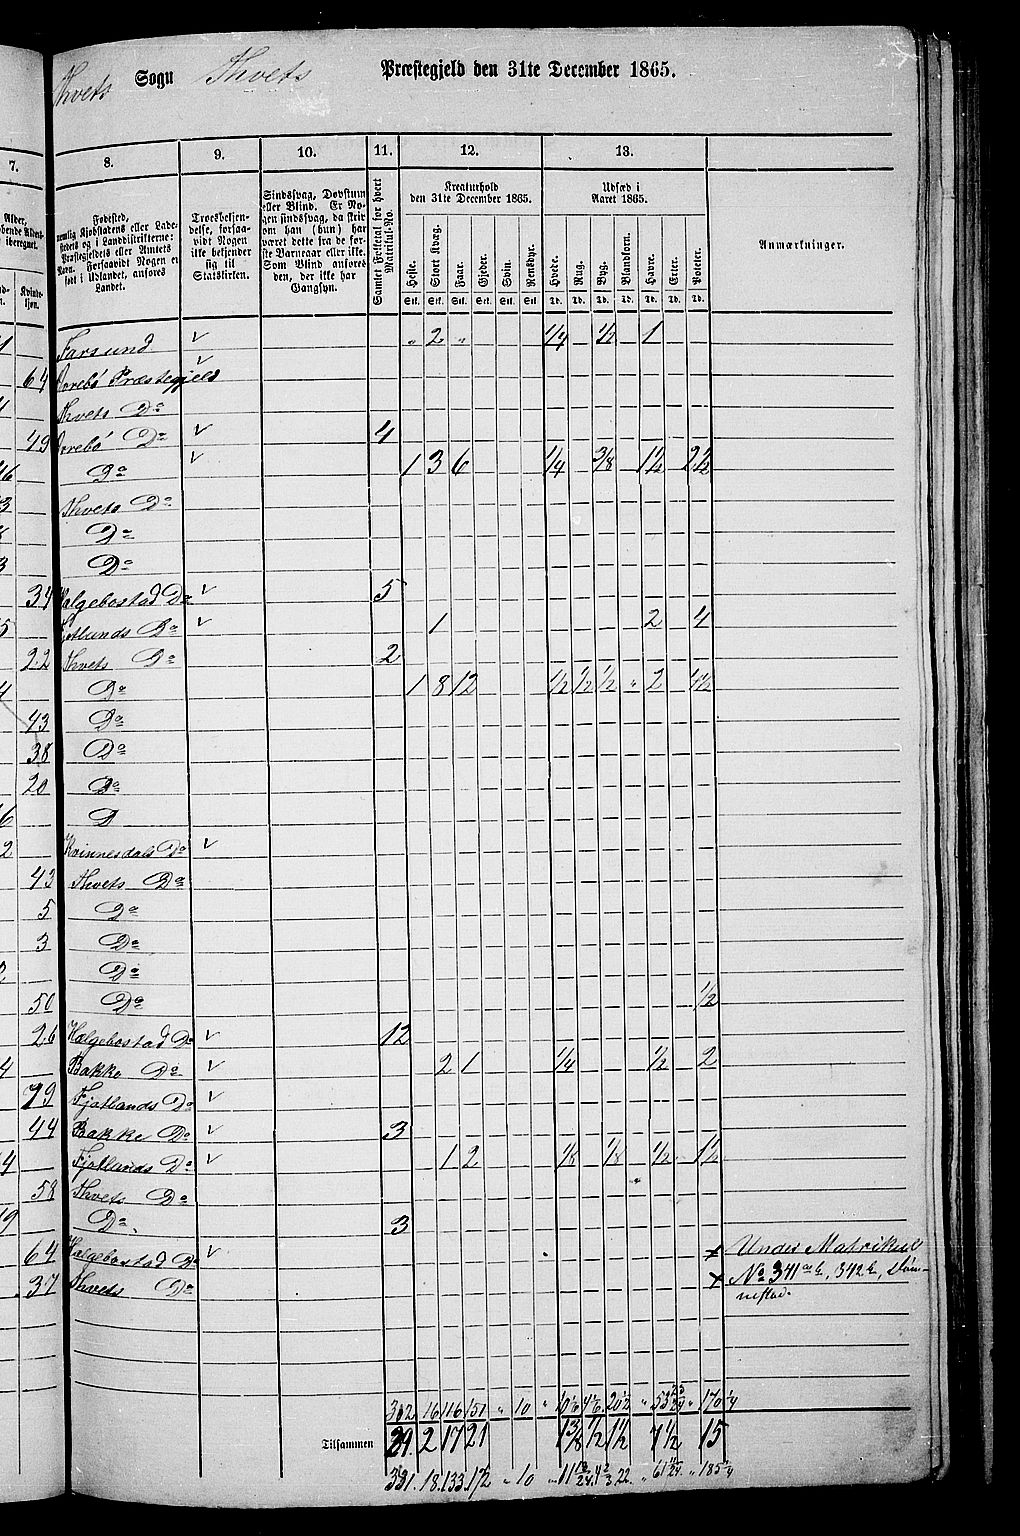 Qvets Sogn Qvets Præstegjeld den 31te December 1865.
7. 8. 9. 10. 11. 12. 13.
Fødested, nemlig Kjøbstadens eller Ladestedets og i Landdistrikterne: Præstegjeldets eller Amtets Navn. Forsaavidt Nogen er født i Udlandet, anføres Landet.
Troesbekjendelse, forsaavidt Nogen ikke bekjender sig til Statskirken.
Sindssvag, Døvstum eller Blind. Er Nogen sindssvag, da skrives om han (hun) har været dette fra de første Barneaar eller ikke. Som Blind anføres den, der ikke har Gangsyn.
Samlet Folketal for hvert Matrikul-No.
Kreaturhold den 31te December 1865.
Heste. Stort Kvæg. Faar. Gjeder. Svin. Rensdyr.
Stk. Stk. Stk. Stk. Stk. Stk.
Udsæd i Aaret 1865.
Hvede. Rug. Byg. Blandkorn. Havre. Erter. Poteter.
Td. Td. Td. Td. Td. Td. Td.
Anmærkninger.
Farsund √ „ 2 „ 1/4 1/2 1
64 Præstegjeld √
Qvets Do
49 Do √ 4
Do √ 1 3 6 1/4 3/8 1 1/2 2 1/2
Qvets Do
Do
Do
34 Hægebostad Do √ 5
Fjotlands Do √ 1 2 4
22 Qvets Do 2
Do 1 8 12 1/2 1/2 1/2 „ 2 4 1/2
43 Do
38 Do
20 Do
D
Kvinnesdals Do √
43 Qvets Do
5 Do
3 Do
Do
50 Do 1/2
26 Hægebostad Do √ 12
Bakke Do √ 2 1 1/4 1/2 2
79 Fjotlands Do √
44 Bakke Do √ 3
Fjotlands Do √ 1 2 1/8 1/8 1/2 1 1/2
58 Qvets Do
Do. 3
64 Hægebostad Do √ x Under Matrikul
37 Qvets Do x No 341 , 342
nestad.
302 16 116 151 „ 10 „ „ 170 1/4
Tilsammen 29. 2 17 21 1 3/8 1/2 1 1/2 7 1/2 15
331. 18. 133. 172 „ 10 „ 22. „ „ 185 1/4